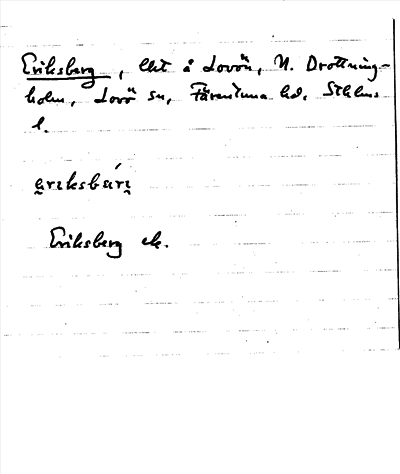 Eriksberg, lht å Lovön, N. Drottning-
holm, Lovö sn, Färentuna hd, Sthlms
l.
eriksbári
Eriksberg ek.